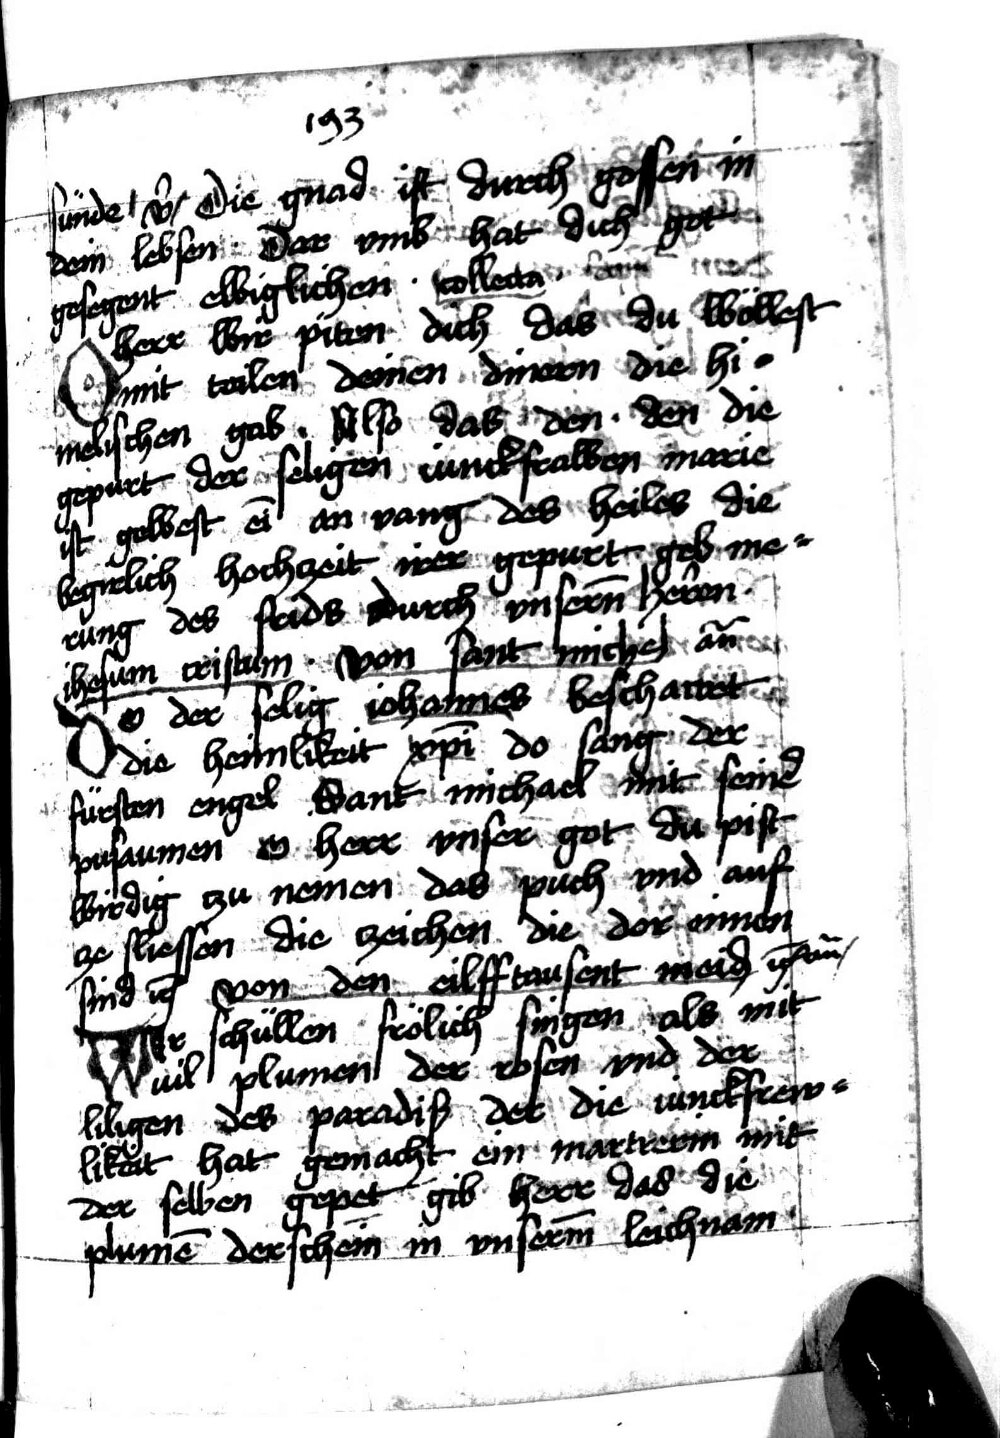 193
sünde v̊ Die gnad ist durch gossen in
dein lebsen Dar vmb hat dich got
gesegent ewiglichen · collecta ·
O herr wir piten dich das du wöllest
mit teilen deinen dinern die hi
melischen gab · Also das den · den die
gepurt der seligen iunckfrawen marie
ist gewest ei̅ an vang des heiles die
begirlich hochzeit irer gepurt geb me=
rung des frids durch vnsern̅ herren ·
ihesum cristum · von sant michel an̅
Do der selig iohannes beschawet
die heimlikeit xp̅i do sang der
fürsten engel Sant michael mit seine̅
pusaumen O herr vnser got du pist
wirdig tzu nemen das puch vnd auf
ze sliessen die tzeichen die dor innen
sind von den eilfftausent meid an̅
Wir schüllen frölich singen als mit
vil plumen der rosen vnd der
liligen des paradiß der die iunckfrew=
likeit hat gemacht ein martrerin mit
der selben gepet gib herr das die
plume̅ derschein in vnserm̅ leichnam ·